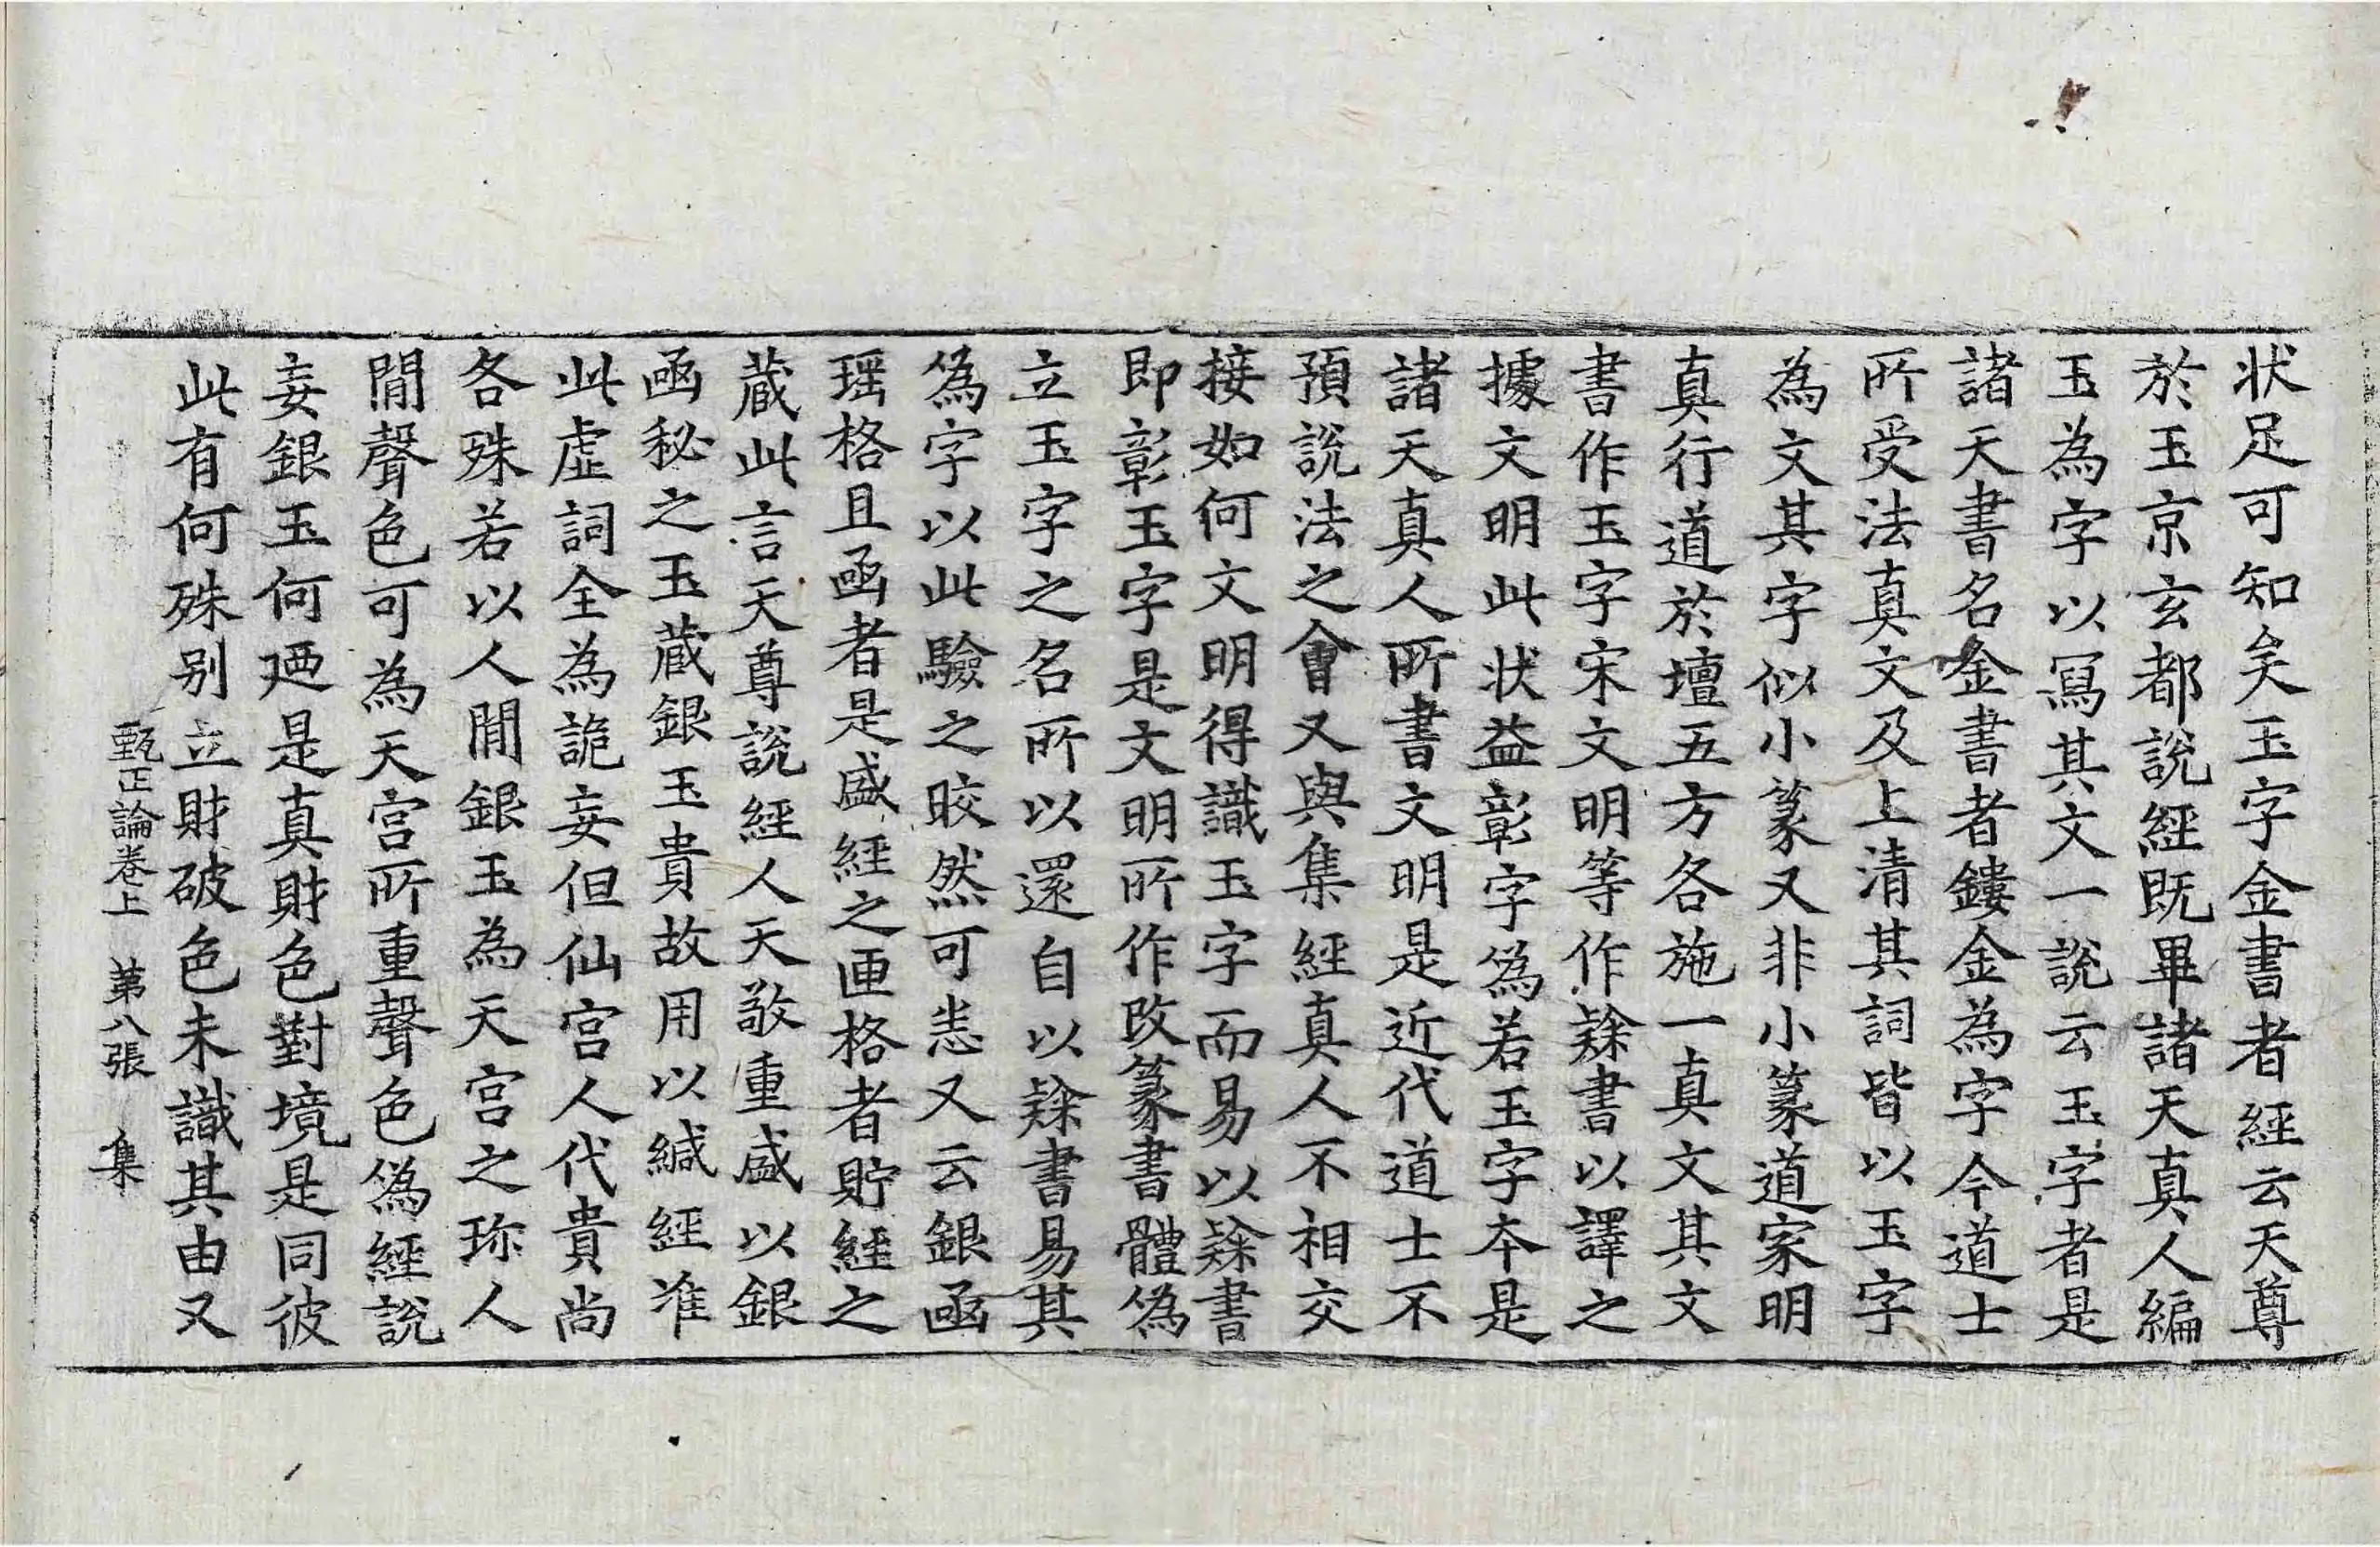 状足可知矣玉字金書者經云天尊
於玉京玄都說經既畢諸天真人編
玉為字以寫其文一說云玉字者是
諸天書名金書者鏤金為字今道士
所受法真文及上清其詞皆以玉字
為文其字似小篆又非小篆道家明
真行道於壇五方各施一真文其文
書作玉字宋文明等作𨽻書以譯之
據文明此状益彰字偽若玉字本是
諸天真人所書文明是近代道士不
預說法之會又與集經真人不相交
接如何文明得識玉字而易以𨽻書
即彰玉字是文明所作改篆書體偽
立玉字之名所以還自以𨽻書易其
偽字以此驗之晈然可恙又云銀函
瑶格且函者是盛經之匣格者貯經之
蔵此言天尊說經人天敬重盛以銀
函秘之玉蔵銀玉貴故用以緘經准
此虛詞全為詭妄但仙宫人代貴尚
各殊若以人間銀玉為天宫之珎人
間聲色可為天宫所重聲色偽經說
妄銀玉何廼是真財色對境是同彼
此有何殊别立財破色未識其由又
甄正論卷上 第八張 集